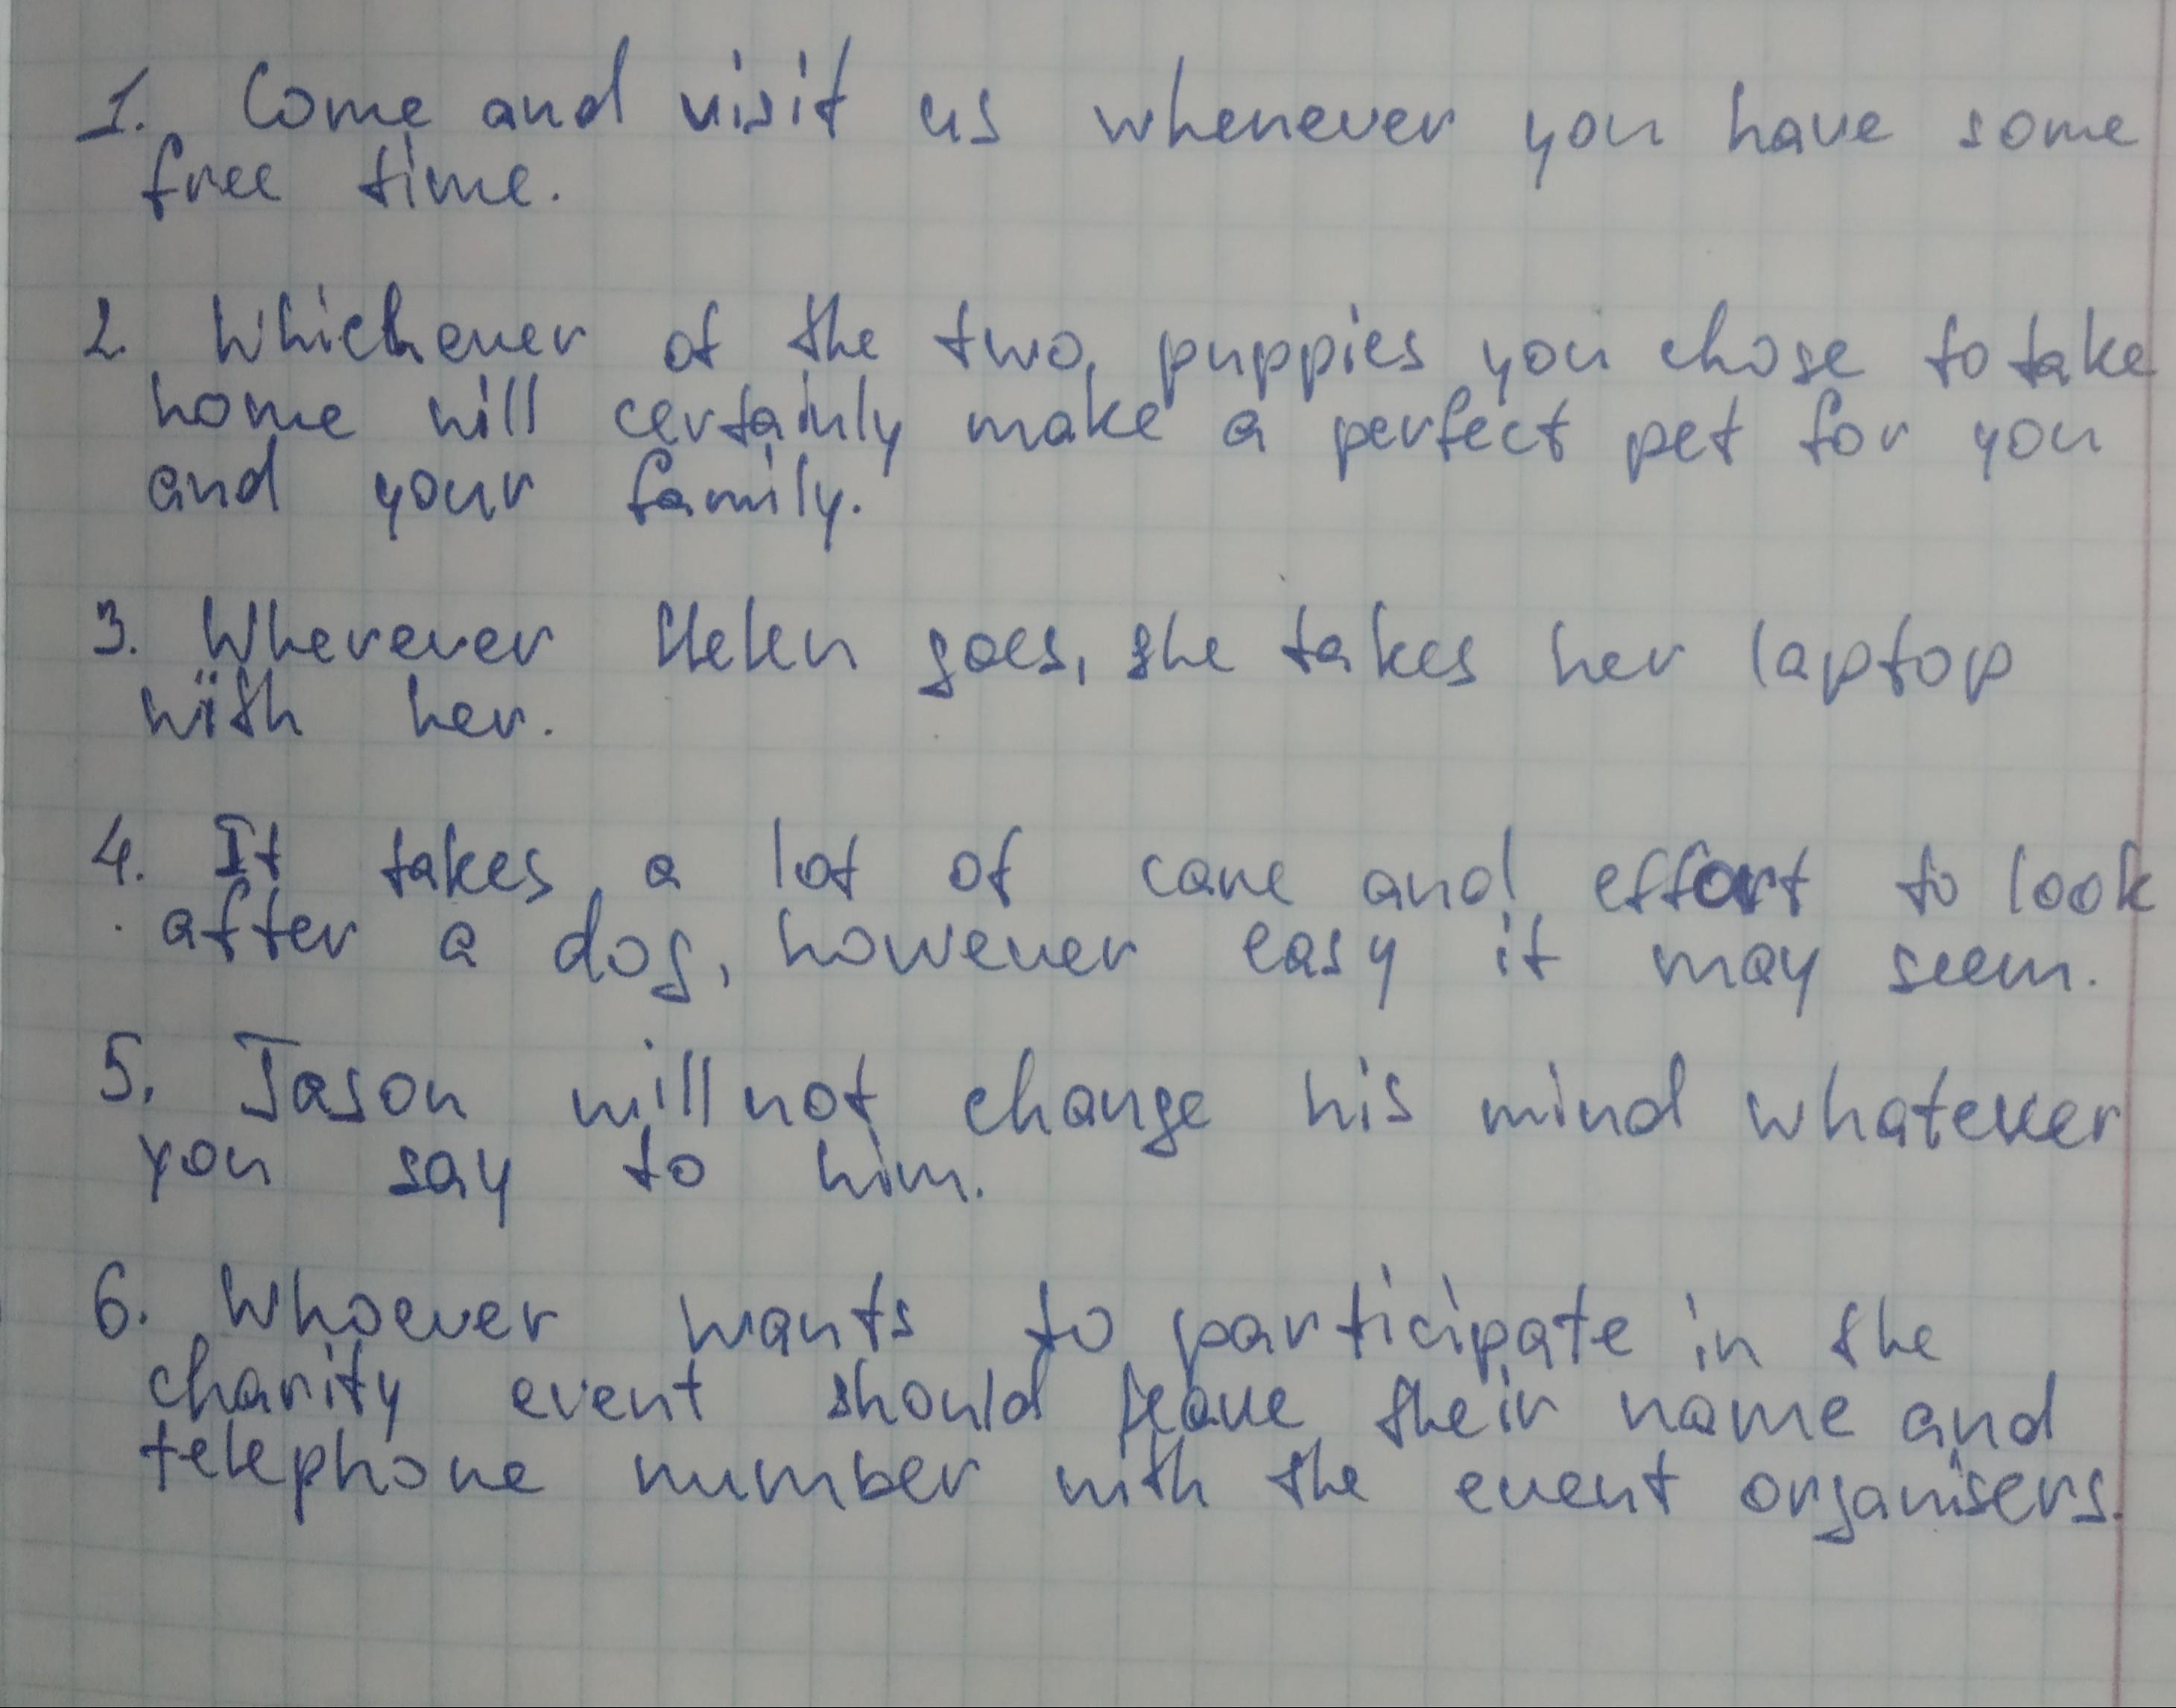 1. Come and visit us whenever you have some
free time.
2. Whichever of the two puppies you chose to take
home will certainly make a perfect pet for you
and your family.
3. Wherever Helen goes, she takes her laptop
with her.
4. It takes a lot of care and effort to look
after a dog, however easy it may seem.
5. Jason will not change his mind whatever
you say to him.
6. Whoever wants to participate in the
charity event should leave their name and
telephone number with the event organisers.